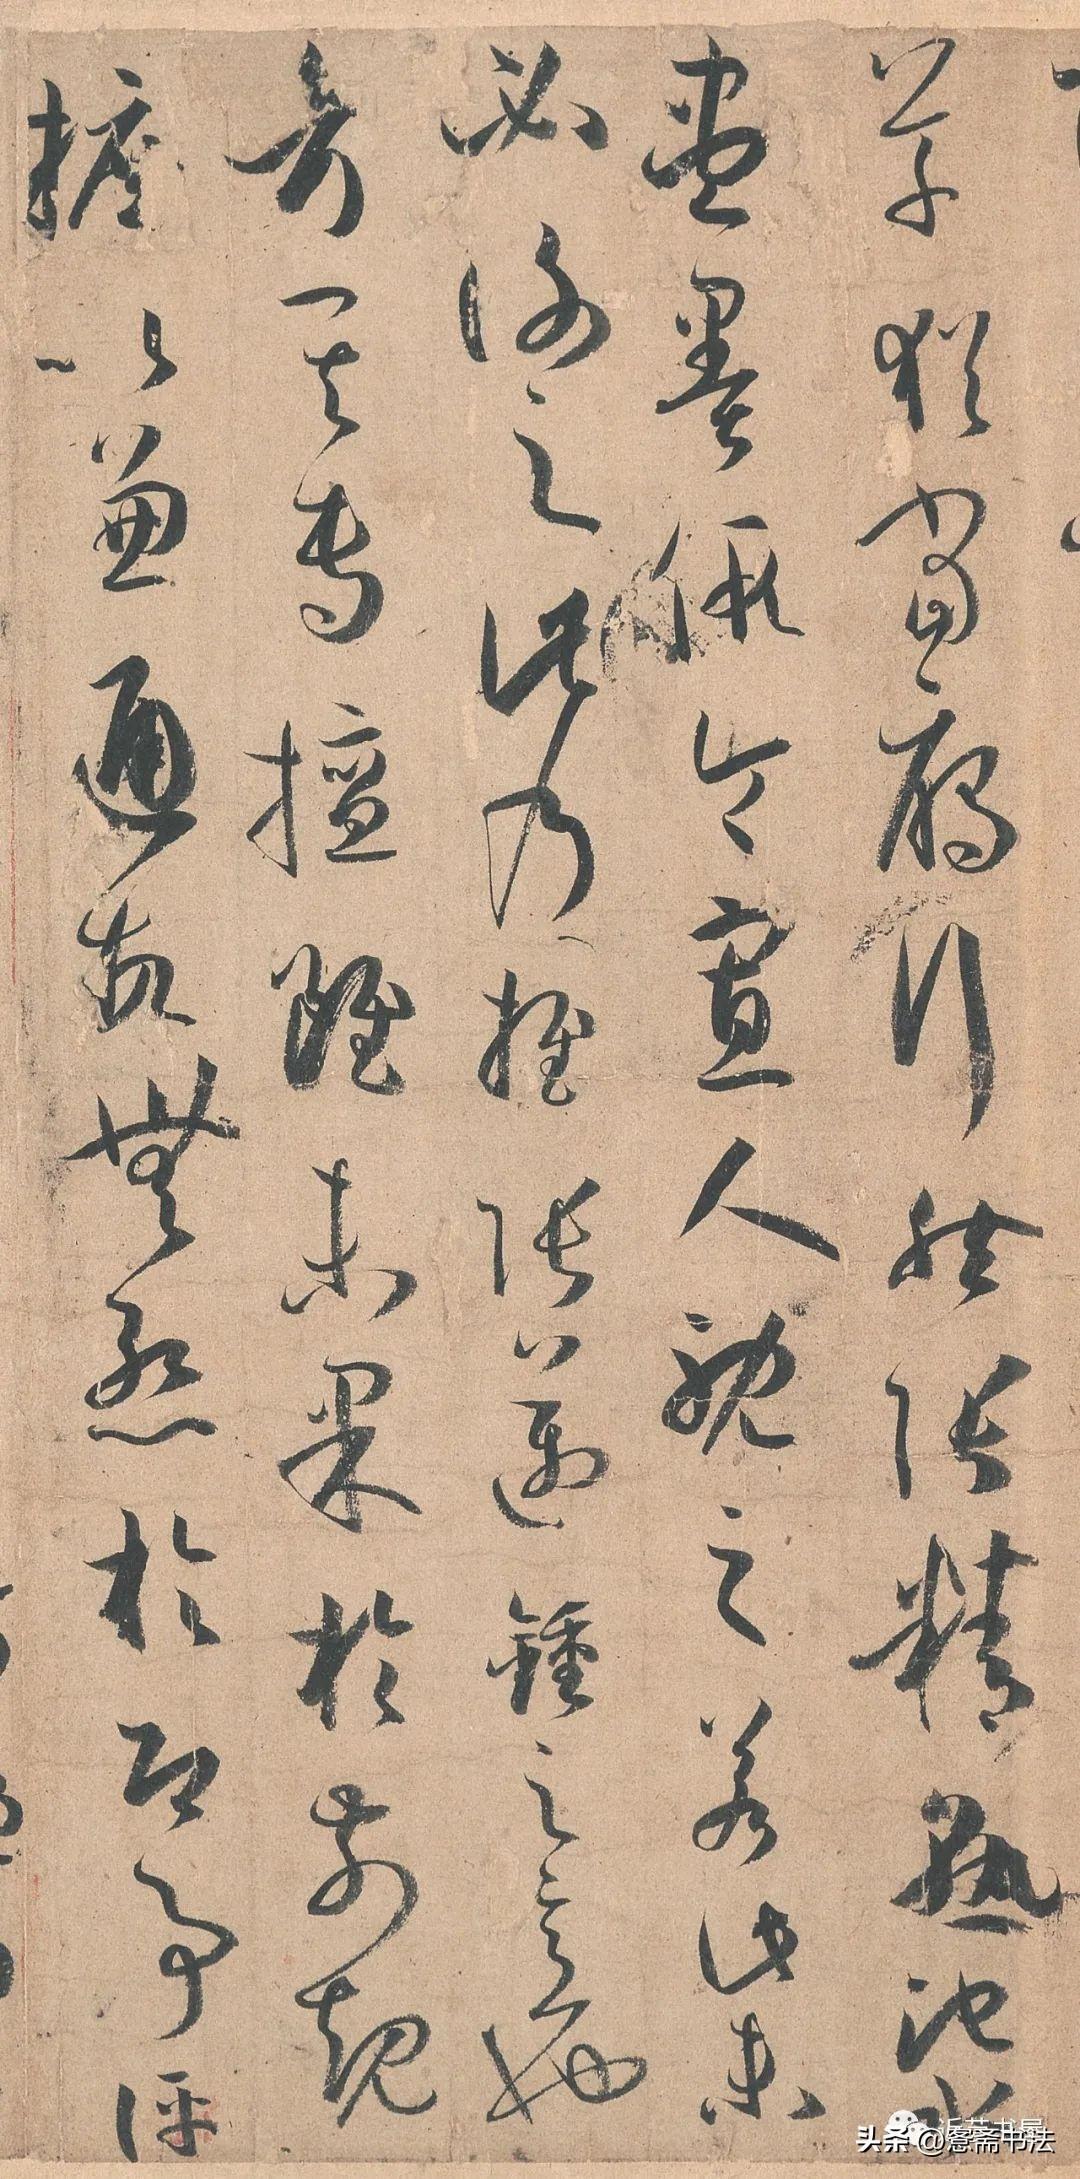 草猶當鴈行然張精熟池水
盡墨假令寡人耽之若此未
必謝之此乃推張邁鍾之意也
考其專擅雖未果於前規
摭以兼通故無慙於即事評
头条 @愙斋书法